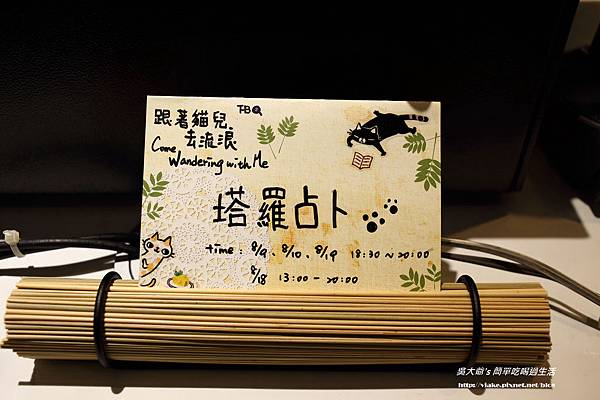 跟著貓兒
去流浪
Come
Wandering with Me
塔羅占卜
time: 8/9、8/10、8/19 18:30~20:00
8/18 13:00-20:00
吳大爺's 簡單吃喝過生活
http://vjake.pixnet.net/blog